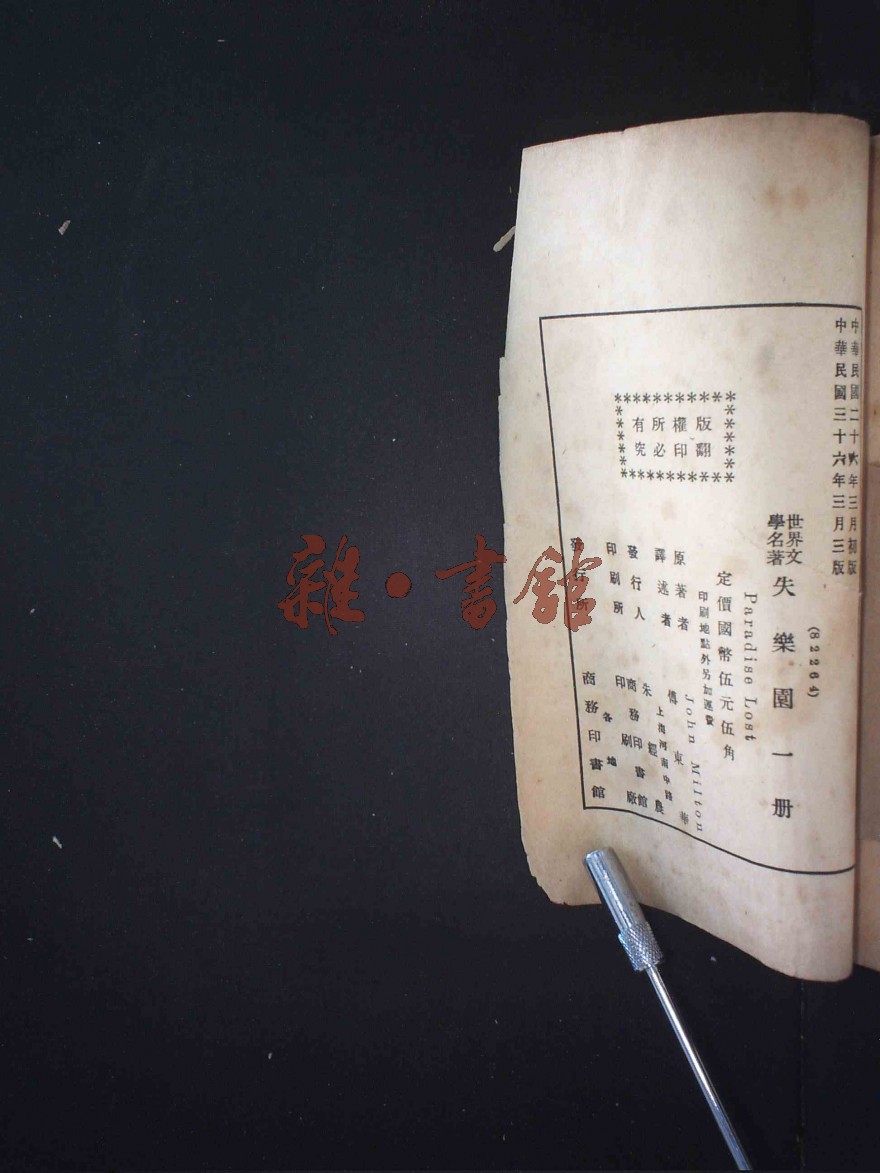 中華民國二十六年三月初版
中華民國三十六年三月三版
(82264)
世界文學名著 失樂園 一册
Paradise Lost
定價國幣伍元伍角
印刷地點外另加運費
原著者 John Milton
譯述者 傅東華
發行人 朱經農
上海河南中路
印刷所 商務印書館印刷廠
發行所 各地 商務印書館
版權所有
翻印必究
雜·書館